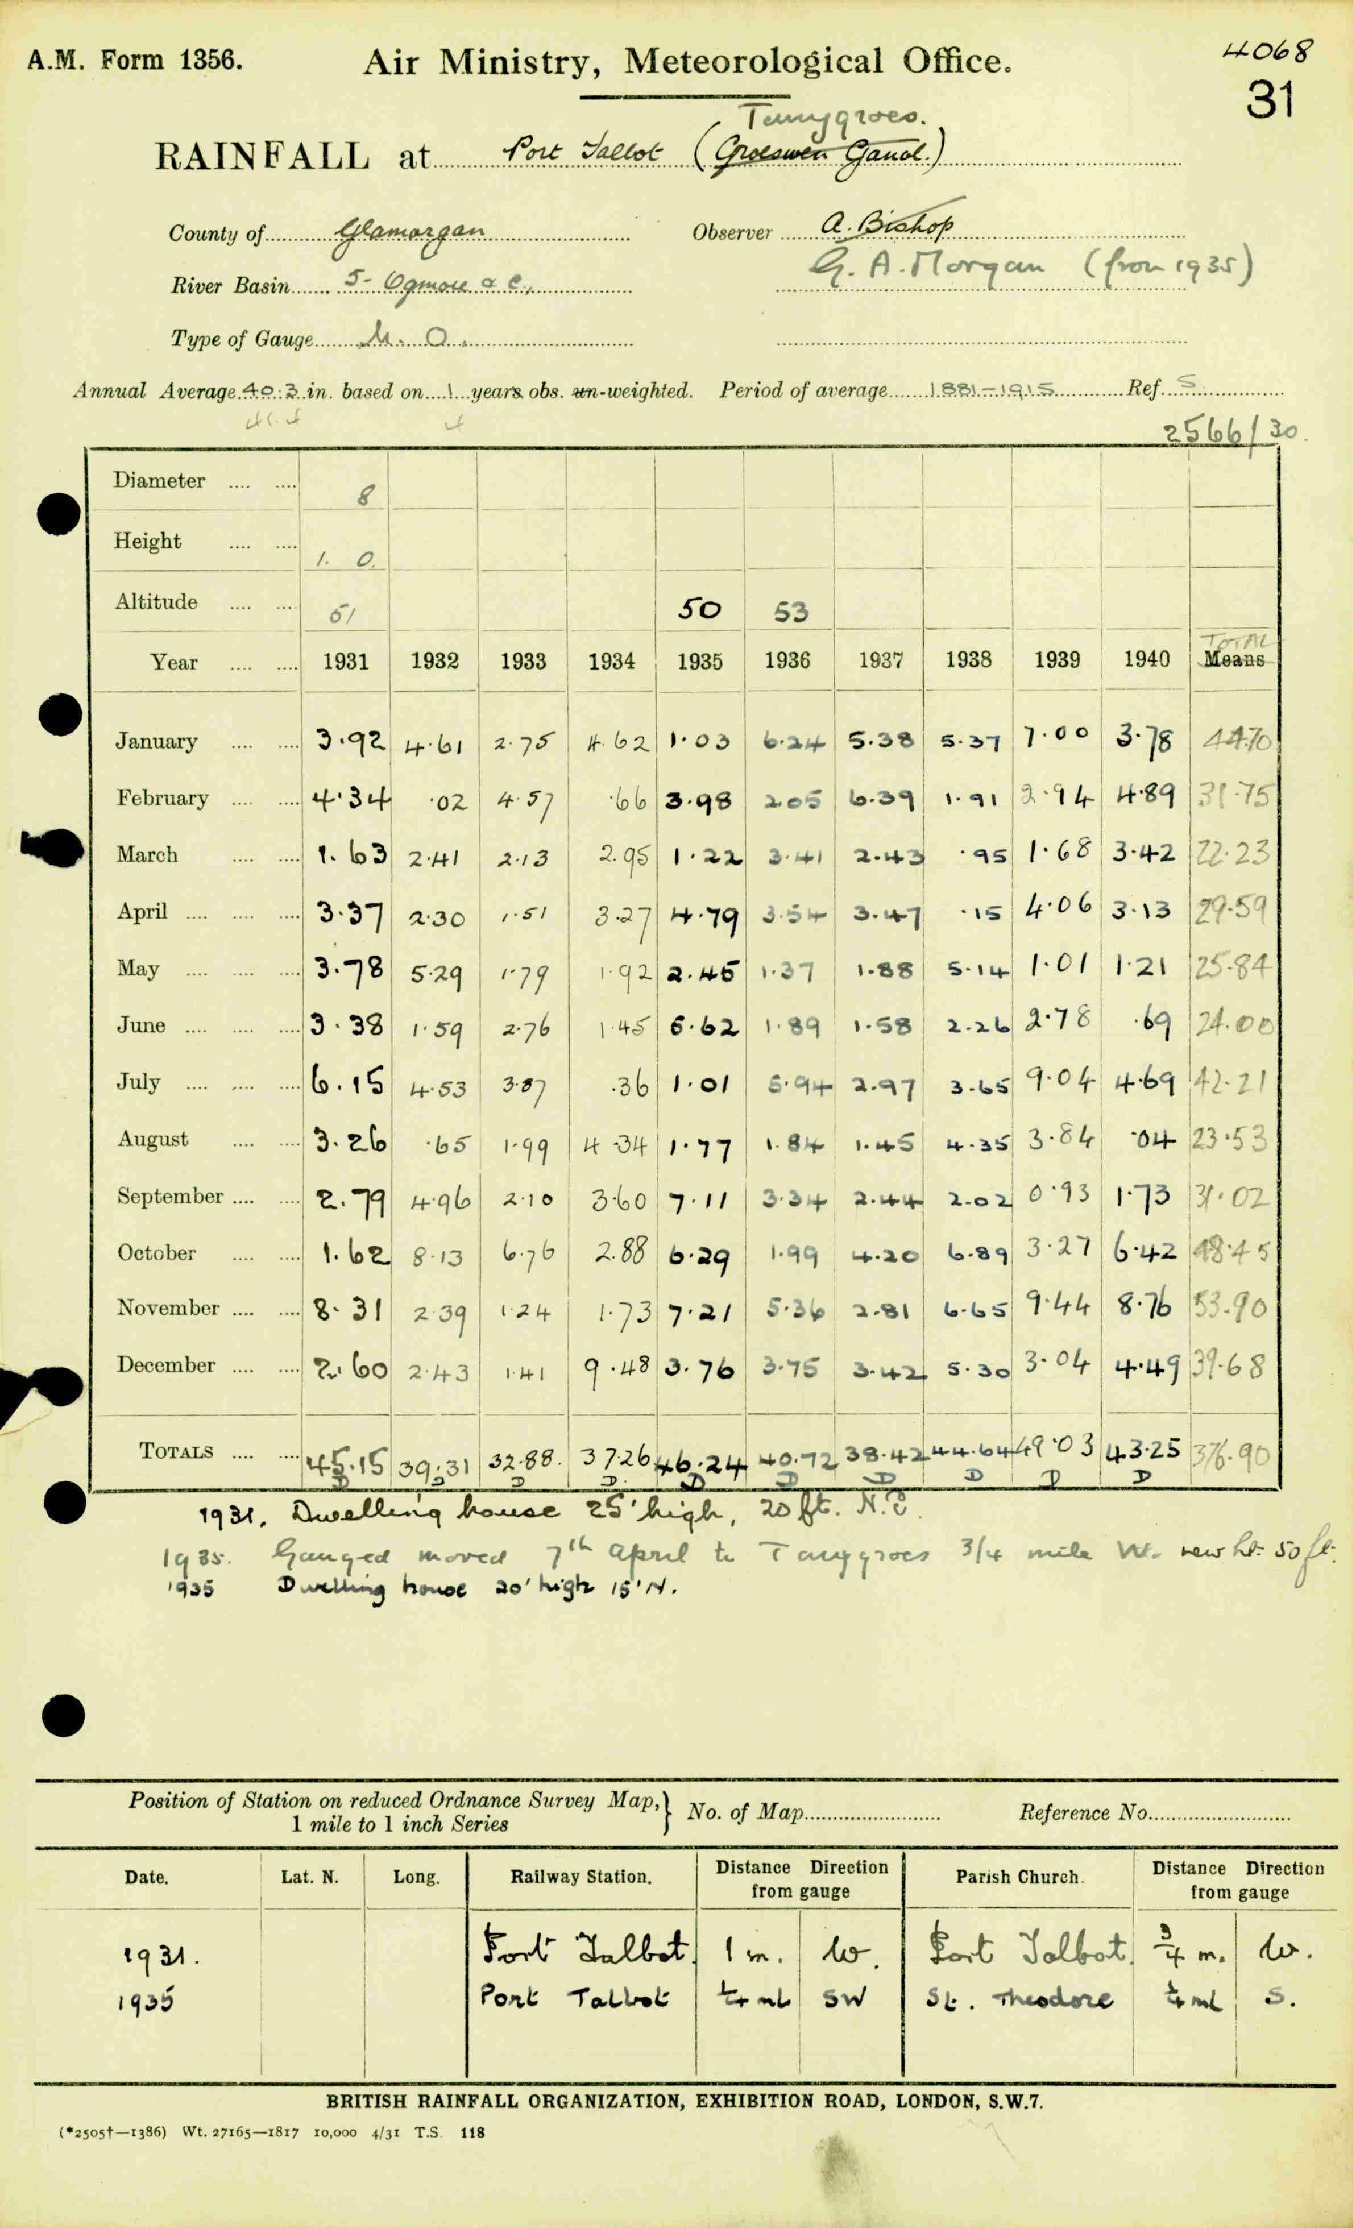 A.M. Form 1356. Air Ministry, Meteorological Office. 4068
31
Tanygroes.
RAINFALL at Port Talbot (Groeswen Gand.)
County of Glamorgan Observer A. Bishop
G. A. Morgan (from 1935)
River Basin 5- Ogmore & c.,
Type of Gauge M. O.
Annual Average 40.3 in. based on 1 years obs. un-weighted. Period of average 1881-1915 Ref. S
41.4 4 2566/30.
Diameter 8
Height 1. 0.
Altitude 51 50 53
TOTAL
Year 1931 1932 1933 1934 1935 1936 1937 1938 1939 1940 Means
January 3.92 4.61 2.75 4.62 1.03 6.24 5.38 5.37 7.00 3.78 44.70
February 4.34 .02 4.57 .66 3.98 2.05 6.39 1.91 2.94 4.89 31.75
March 1.63 2.41 2.13 2.95 1.22 3.41 2.43 .95 1.68 3.42 22.23
April 3.37 2.30 1.51 3.27 4.79 3.54 3.47 .15 4.06 3.13 29.59
May 3.78 5.29 1.79 1.92 2.45 1.37 1.88 5.14 1.01 1.21 25.84
June 3.38 1.59 2.76 1.45 5.62 1.89 1.58 2.26 2.78 .69 24.00
July 6.15 4.53 3.87 .36 1.01 5.94 2.97 3.65 9.04 4.69 42.21
August 3.26 .65 1.99 4.34 1.77 1.84 1.45 4.35 3.84 .04 23.53
September 2.79 4.96 2.10 3.60 7.11 3.34 2.44 2.02 0.93 1.73 31.02
October 1.62 8.13 6.76 2.88 6.29 1.99 4.20 6.89 3.27 6.42 48.45
November 8.31 2.39 1.24 1.73 7.21 5.36 2.81 6.65 9.44 8.76 53.90
December 2.60 2.43 1.41 9.48 3.76 3.75 3.42 5.30 3.04 4.49 39.68
TOTALS 45.15 39.31 32.88. 37.26 46.24 40.72 38.42 44.64 49.03 43.25 376.90
D D D D. D D D D D D
1931. Dwelling house 25' high, 20 ft. N.E.
1935. Gauged moved 7th April to Tanygroes 3/4 mile W. new ht. 50 ft.
1935 Dwelling house 20' high 15' N.
Position of Station on reduced Ordnance Survey Map, } No. of Map Reference No.
1 mile to 1 inch Series
Date. Lat. N. Long. Railway Station. Distance Direction from gauge Parish Church. Distance Direction from gauge
1931. Port Talbot. 1 m. W. Port Talbot. 3/4 m. W.
1935 Port Talbot 1/4 ml SW St. Theodore 1/4 ml S.
BRITISH RAINFALL ORGANIZATION, EXHIBITION ROAD, LONDON, S.W.7.
(*2505†—1386) Wt. 27165—1817 10,000 4/31 T.S. 118